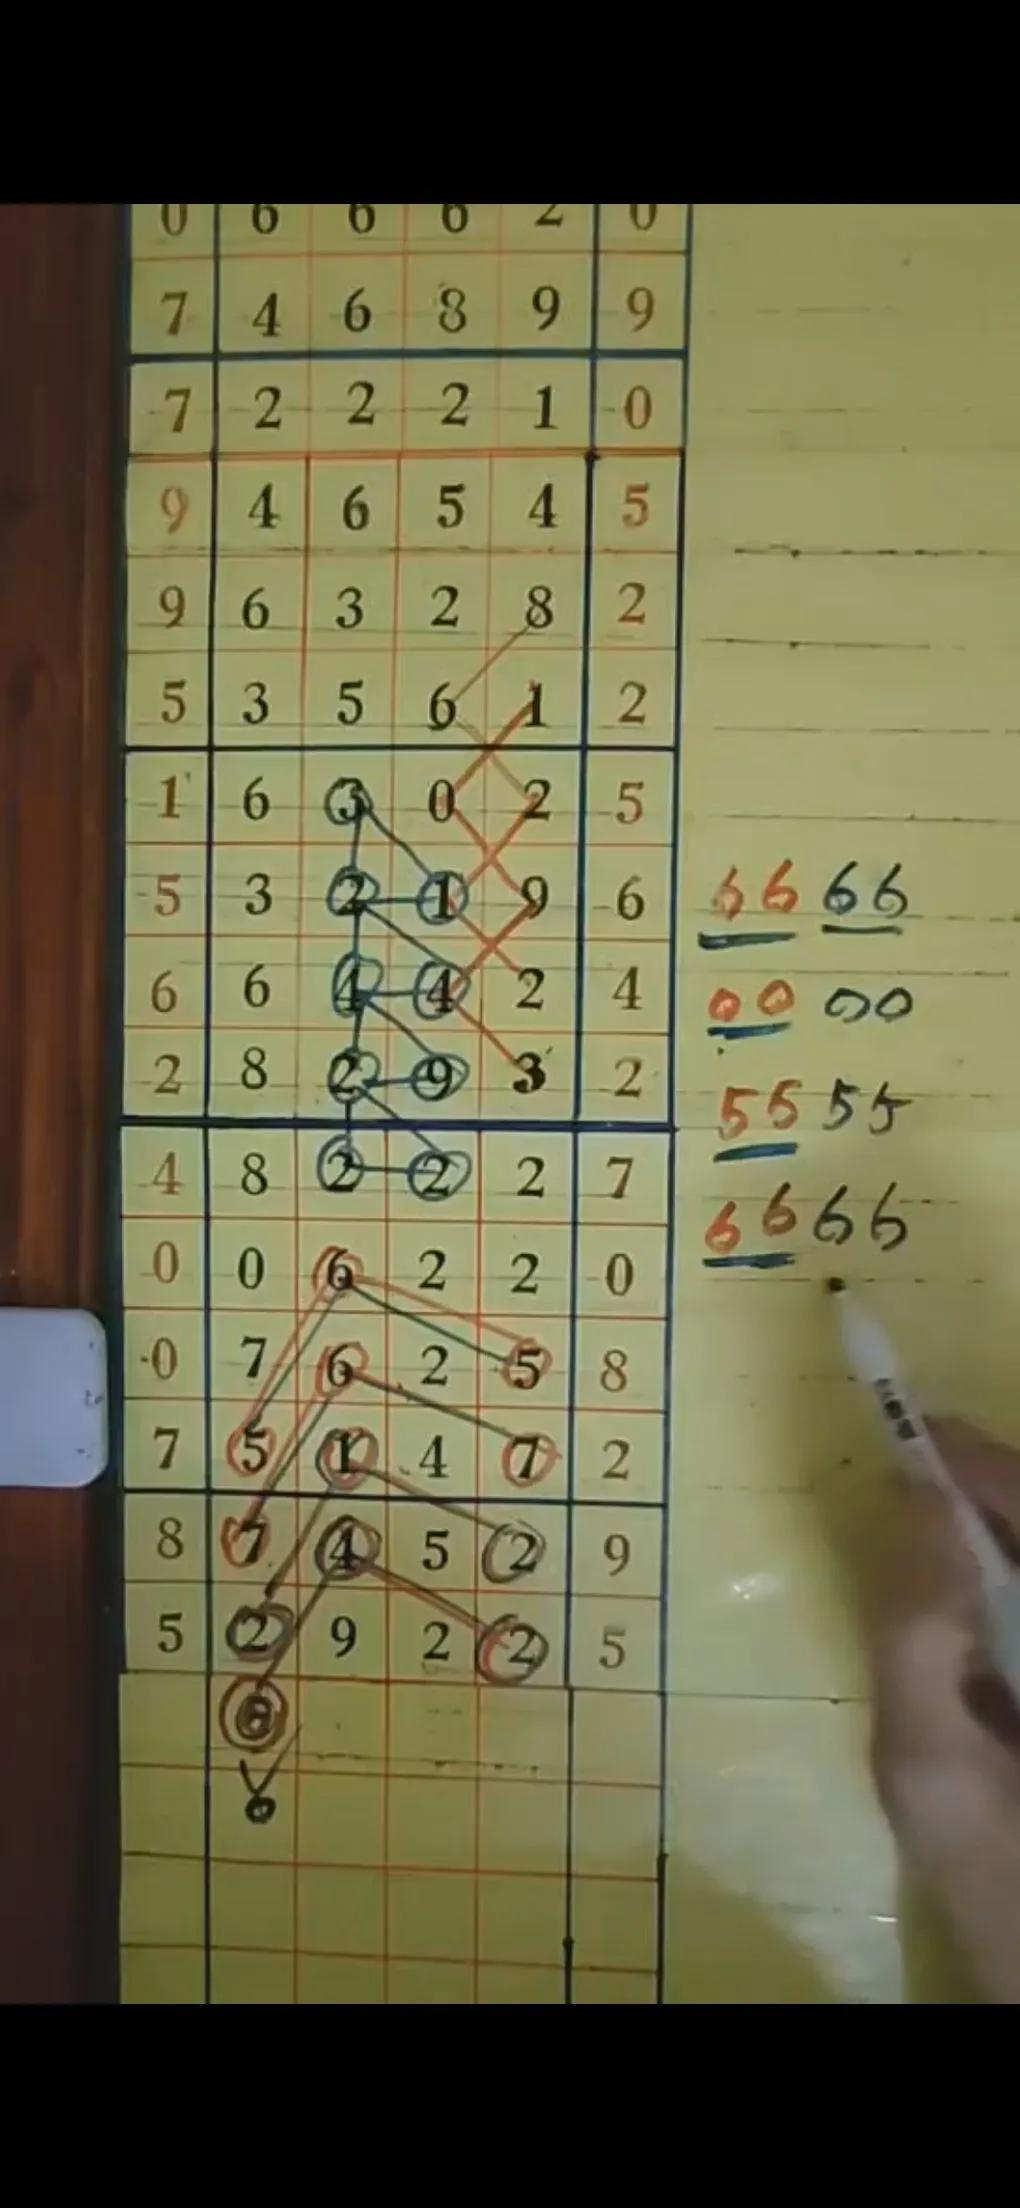 0 6 6 6 2 0
7 4 6 8 9 9
7 2 2 2 1 0
9 4 6 5 4 5
9 6 3 2 8 2
5 3 5 6 1 2
1 6 3 0 2 5
5 3 2 1 9 6
6 6 4 4 2 4
2 8 2 9 3 2
4 8 2 2 2 7
0 0 6 2 2 0
0 7 6 2 5 8
7 5 1 4 7 2
8 7 4 5 2 9
5 2 9 2 2 5
66 66
00 00
55 55
66 66